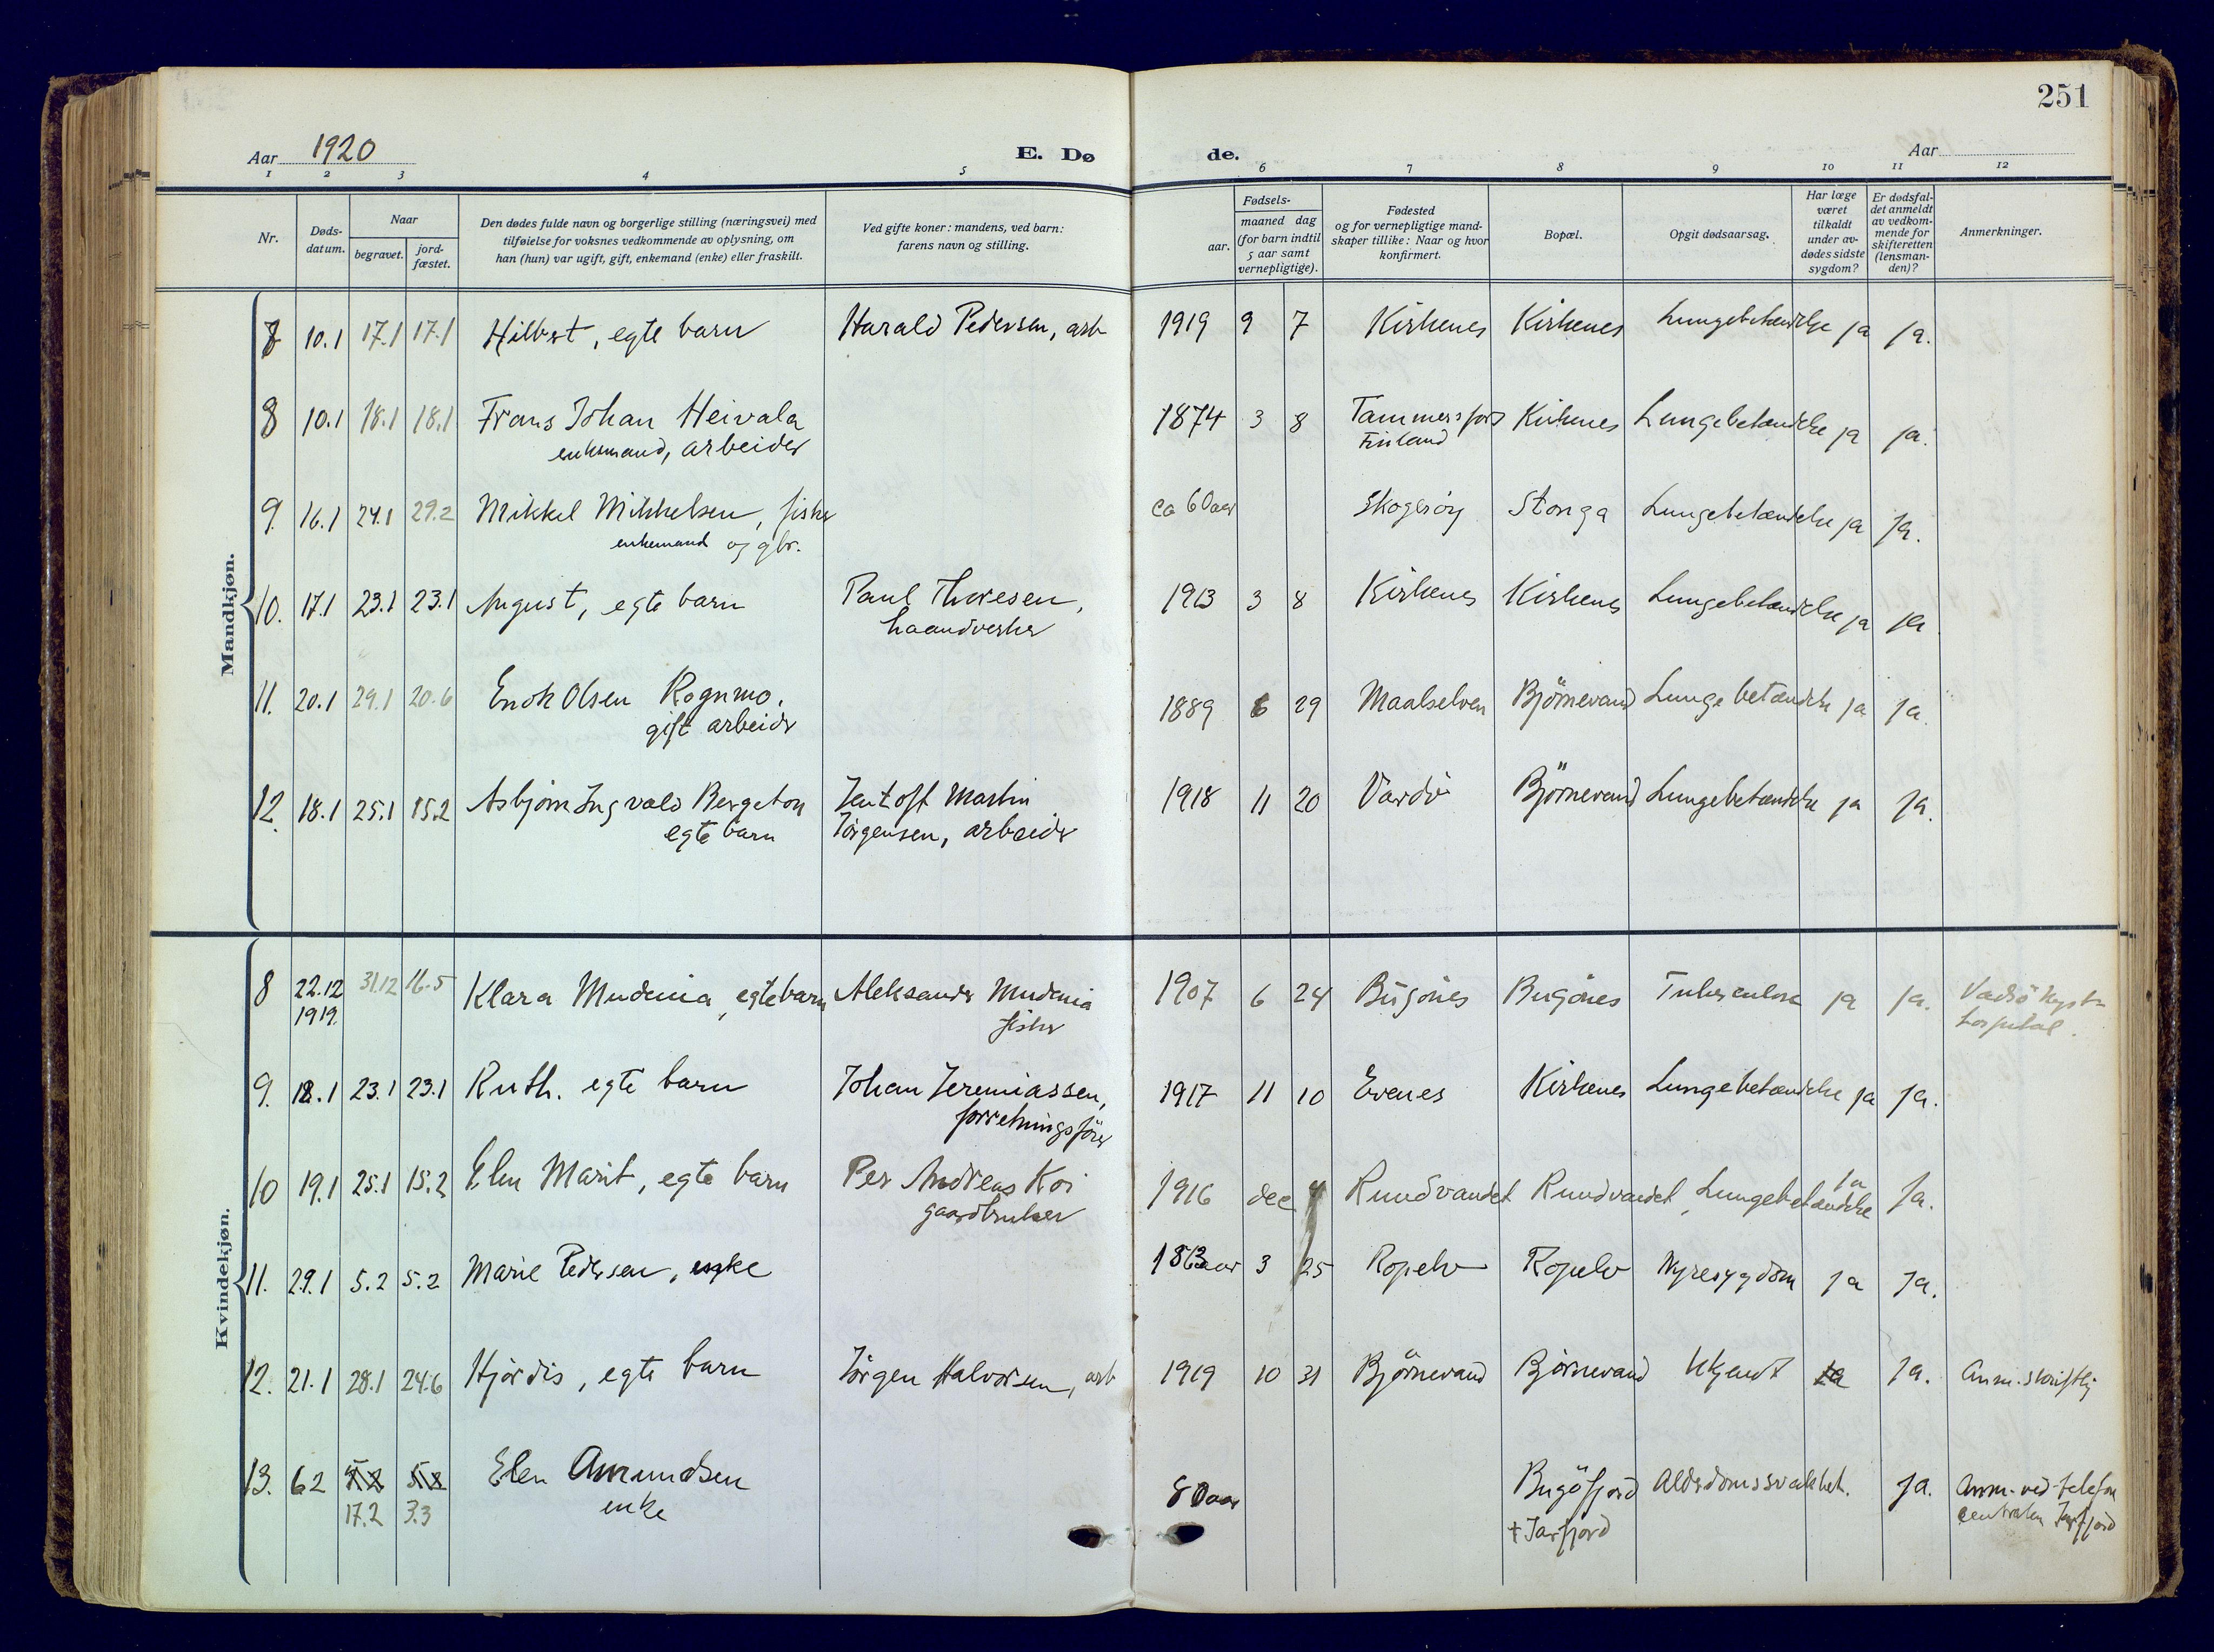 251
Aar 1920
E. Dø
de.
Aar
1 2 3 4 5 6 7 8 9 10 11 12
Nr.
Døds-
datum.
Naar
begravet.
jord-
fæstet.
Den dødes fulde navn og borgerlige stilling (næringsvei) med
tilføielse for voksnes vedkommende av oplysning, om
han (hun) var ugift, gift, enkemand (enke) eller fraskilt.
Ved gifte koner: mandens, ved barn:
farens navn og stilling.
Fødsels-
aar.
maaned dag
(for barn indtil
5 aar samt
vernepligtige).
Fødested
og for vernepligtige mand-
skaper tillike: Naar og hvor
konfirmert.
Bopæl.
Opgit dødsaarsag.
Har læge
været
tilkaldt
under av-
dødes sidste
sygdom?
Er dødsfal-
det anmeldt
av vedkom-
mende for
skifteretten
(lensman-
den)?
Anmerkninger.
Mandkjøn.
7 10.1 17.1 17.1 Hilbert, egte barn Harald Pedersen, arb 1919 9 7 Kirkenes Kirkenes Lungebetændelse ja ja.
8 10.1 18.1 18.1 Frans Johan Heivala 1874 3 8 Tammersfors Kirkenes Lungebetændelse ja ja.
enkemand, arbeider Finland
9. 16.1 24.1 29.2 Mikkel Mikkelsen, fisker ca 60 aar Skogerøy Stonga Lungebetændelse ja ja.
enkemand og gbr.
10. 17.1 23.1 23.1 August, egte barn Paul Thoresen, 1913 3 8 Kirkenes Kirkenes Lungebetændelse ja ja
haandverker
11. 20.1 29.1 20.6 Enok Olsen Rognmo. 1889 6 29 Maalselven Bjørnevand Lungebetændelse ja ja.
gift arbeider
12. 18.1 25.1 15.2 Asbjørn Ingvald Bergeton Jentoft Martin 1918 11 20 Vardö Björnevand Lungebetændelse ja ja.
egte barn Jørgensen, arbeider
Kvindekjøn.
8 22.12 31.12 16.5 Klara Mudenia, egte barn Aleksander Mudenia 1907 6 24 Bugönes Bugönes Tuberculose ja ja. Vadsö Kyst-
1919. fisker hospital.
9. 18.1 23.1 23.1 Ruth. egte barn Johan Jeremiassen, 1917 11 10 Evenes Kirkenes Lungebetændelse ja ja.
forretningsfører
10 19.1 25.1 15.2 Elen Marit, egte barn Per Andreas Koi 1916 dec 4 Rundvandet Rundvandet Lungebetændelse ja ja.
gaardbruker
11. 29.1 5.2 5.2 Marie Pedersen, enke 3 25 Ropelv Ropelv Nyresygdom ja ja.
12. 21.1 28.1 24.6 Hjördis, egte barn Jörgen Halvorsen, arb 1919 10 31 Bjørnevand Björnevand Ukjendt ja ja. Anm. skriftlig
13. 6.2 5.2 5.2 Elen Amundsen 80 aar Bugöfjord Alderdomssvakhet. ja. Anm. ved telefon
17.2 3.3 enke † Jarfjord centralen Jarfjord